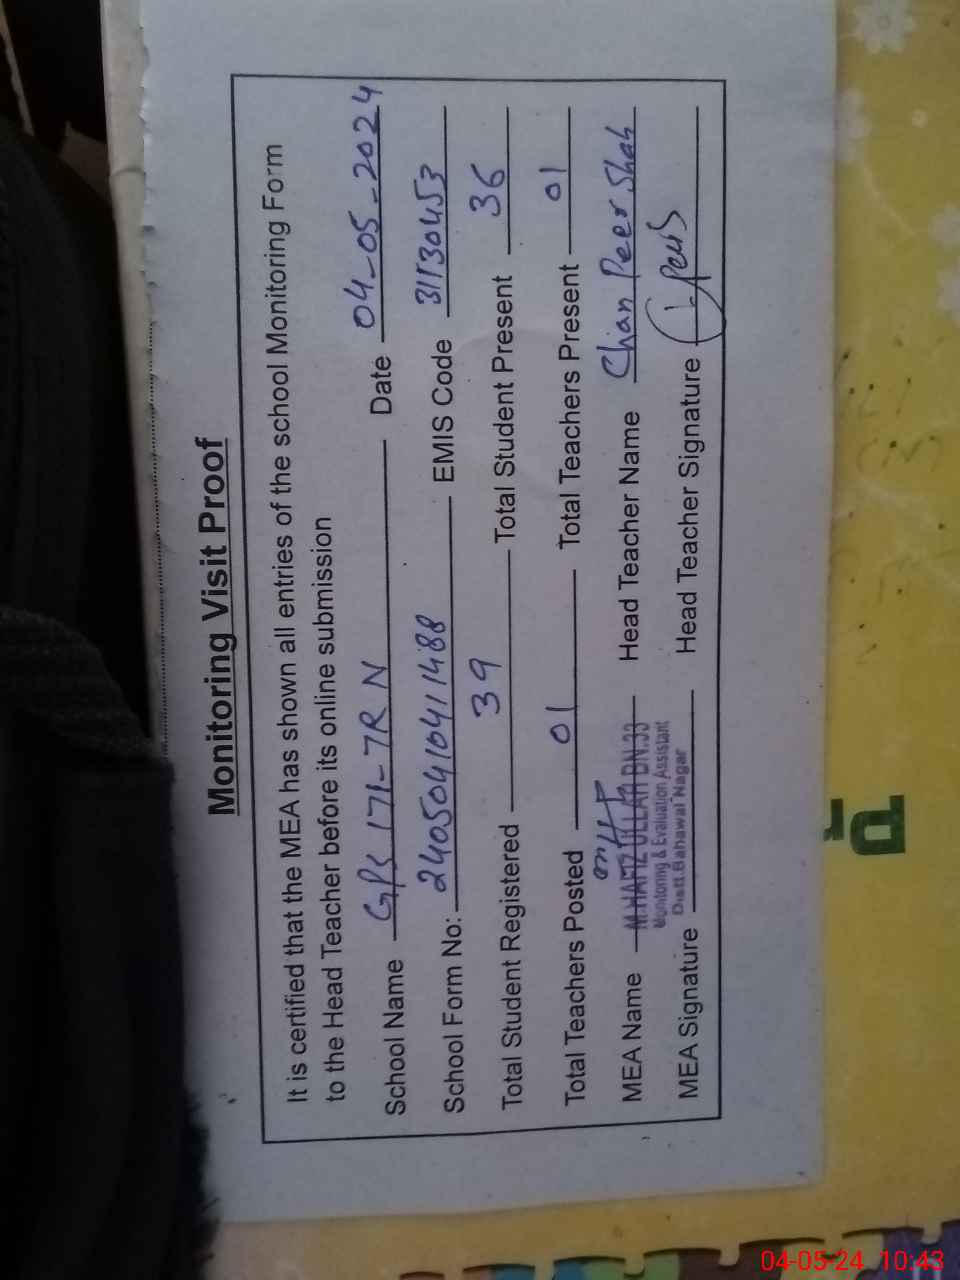 Monitoring Visit Proof
It is certified that the MEA has shown all entries of the school Monitoring Form
to the Head Teacher before its online submission
School Name GPS 171-7R N Date 04-05-2024
School Form No: 240504104111488 EMIS Code 31130453
Total Student Registered 39 Total Student Present 36
Total Teachers Posted 01 Total Teachers Present 01
MEA Name M.HAFIZ ULLAH BN.33 Head Teacher Name Chan Peer Shah
Monitoring & Evaluation Assistant
Distt.Bahawal Nagar
MEA Signature Head Teacher Signature
04-05-24 10:43